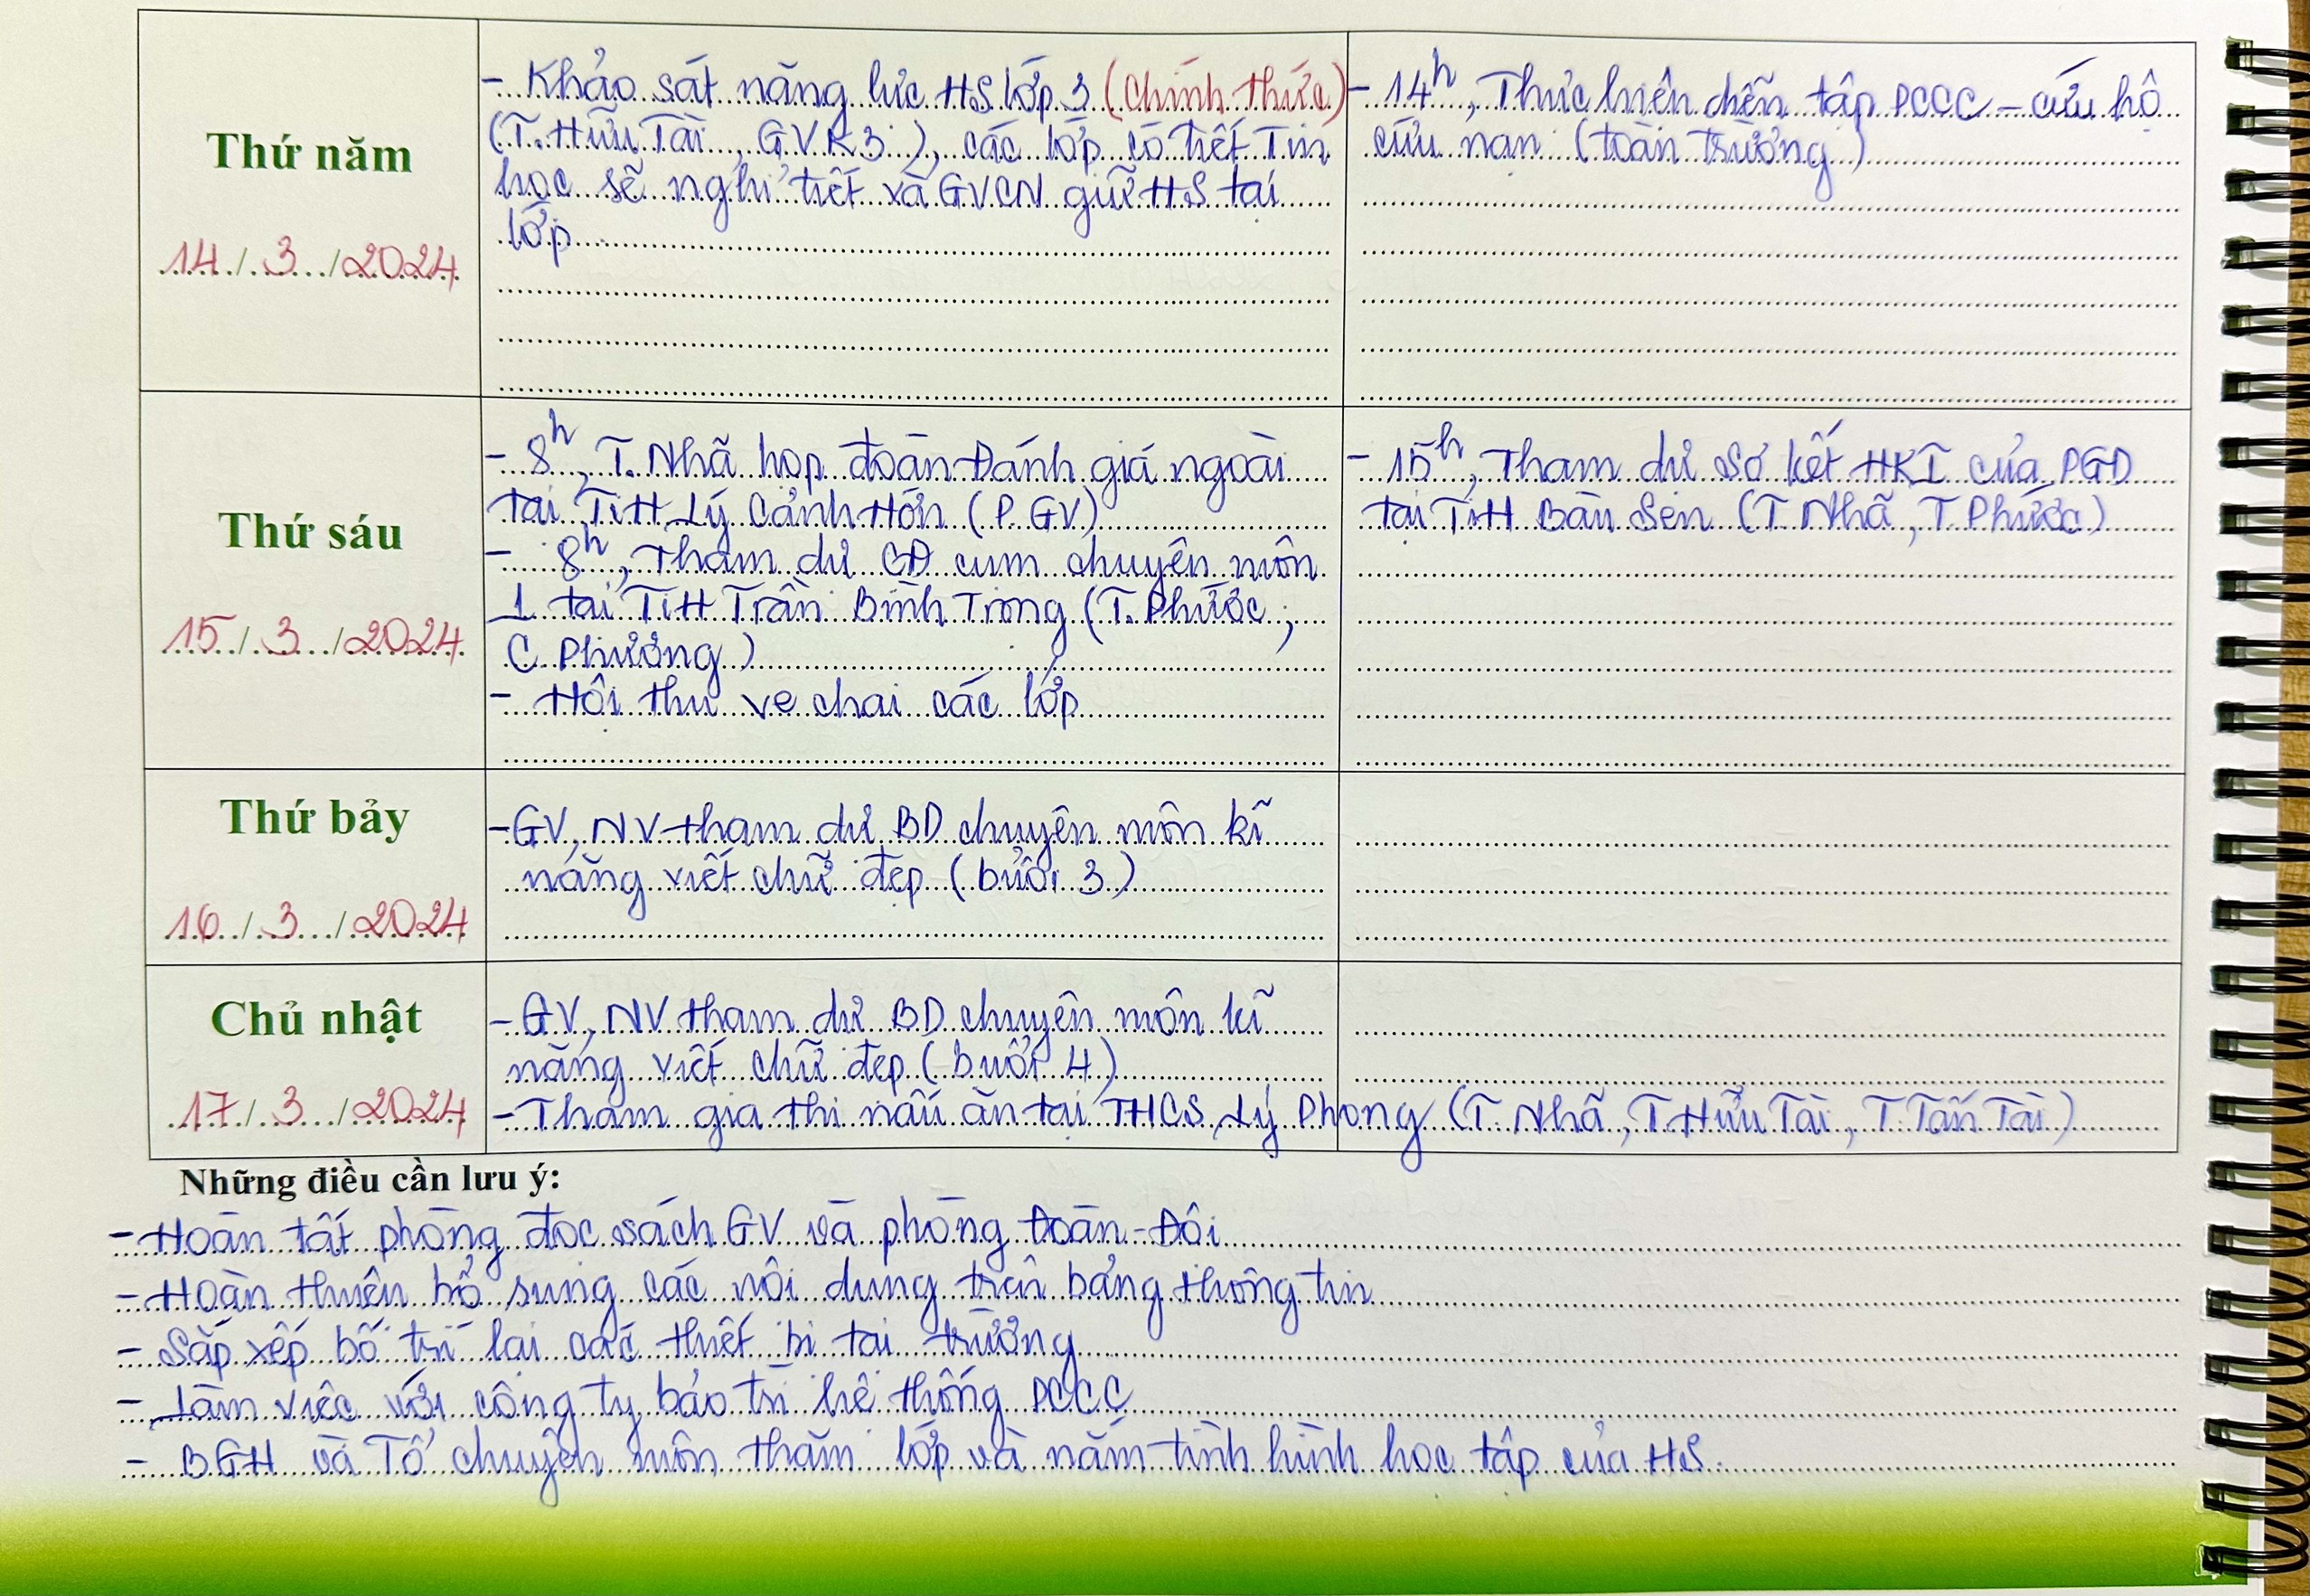 Thứ năm
14/3/2024
- Khảo sát năng lực HS lớp 3 (chính thức)
(T. Hữu Tài, GVK3), các lớp có tiết Tin
học sẽ nghỉ tiết và GVCN giữ HS tại
lớp
- 14h, Thực hiện diễn tập PCCC - cứu hộ
cứu nạn (toàn trường)
Thứ sáu
15/3/2024
- 8h, T. Nhã họp đoàn Đánh giá ngoài
tại TiH Lý Cảnh Hớn (P. GV)
- 8h, Tham dự CĐ cụm chuyên môn
1 tại TiH Trần Bình Trọng (T. Phước,
C. Phượng)
- Hội thu ve chai các lớp
- 15h, Tham dự sơ kết HKI của PGD
tại TiH Bàu Sen (T. Nhã, T. Phước)
Thứ bảy
16/3/2024
- GV, NV tham dự BD chuyên môn kĩ
năng viết chữ đẹp (buổi 3)
Chủ nhật
17/3/2024
- GV, NV tham dự BD chuyên môn kĩ
năng viết chữ đẹp (buổi 4)
- Tham gia thi nấu ăn tại THCS Lý Phong (T. Nhã, T Hữu Tài, T. Tấn Tài)
Những điều cần lưu ý:
- Hoàn tất phòng đọc sách GV và phòng Đoàn - Đội
- Hoàn thiện bổ sung các nội dung trên bảng thông tin
- Sắp xếp bố trí lại các thiết bị tại trường
- Làm việc với công ty bảo trì hệ thống PCCC
- BGH và Tổ chuyên môn thăm lớp và nắm tình hình học tập của HS.